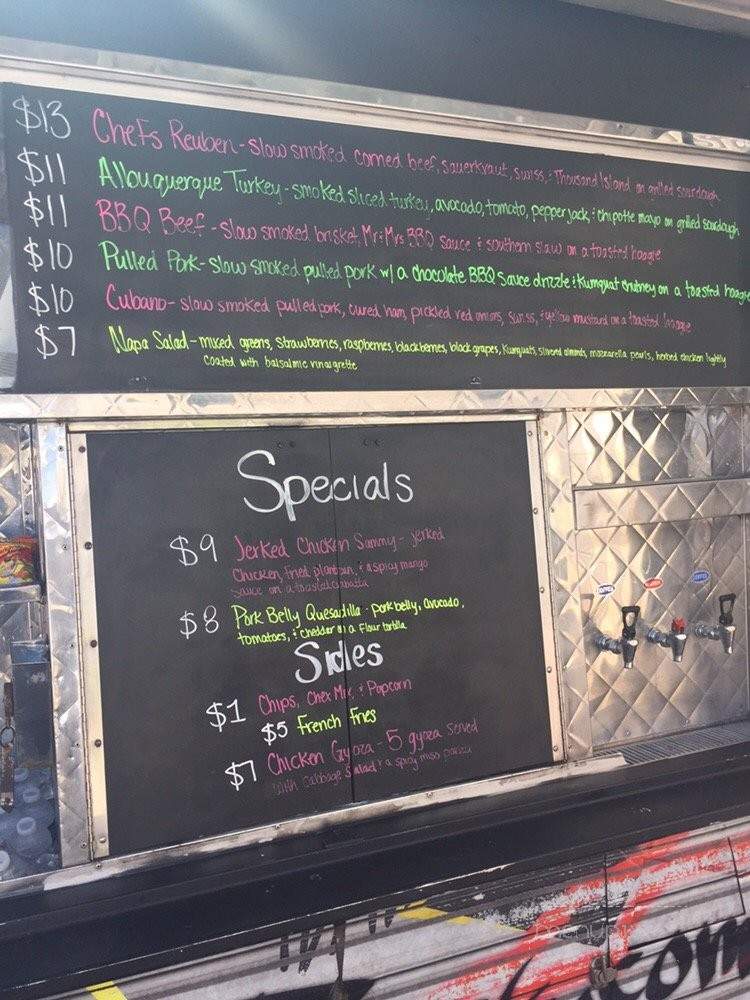 $13 Chefs Reuben - slow smoked corned beef, sauerkraut, swiss, & Thousand Island on grilled sourdough
$11 Albuquerque Turkey - smoked sliced turkey, avocado, tomato, pepper jack, & chipotle mayo on grilled sourdough
$11 BBQ Beef - slow smoked brisket, Mr & Mrs BBQ sauce & southern slaw on a toasted hoagie
$10 Pulled Pork - slow smoked pulled pork w/ a chocolate BBQ sauce drizzle & Kumquat chutney on a toasted hoagie
$10 Cubano - slow smoked pulled pork, cured ham, pickled red onions, swiss, & yellow mustard on a toasted hoagie
$7 Napa Salad - mixed greens, strawberries, raspberries, blackberries, black grapes, kumquats, slivered almonds, mozzarella pearls, herbed chicken lightly
coated with balsalmic vinaigrette
Specials
$9 Jerked Chicken Sammy - jerked
Chicken, fried plantain, & a spicy mango
sauce on a toasted ciabatta
$8 Pork Belly Quesadilla - pork belly, avocado,
tomatoes, & cheddar on a flour tortilla
Sides
$1 Chips, Chex Mix, & Popcorn
$5 French fries
$7 Chicken Gyoza - 5 gyoza served
with cabbage salad & a spicy miso ponzu
COFFEE
COFFEE
.com